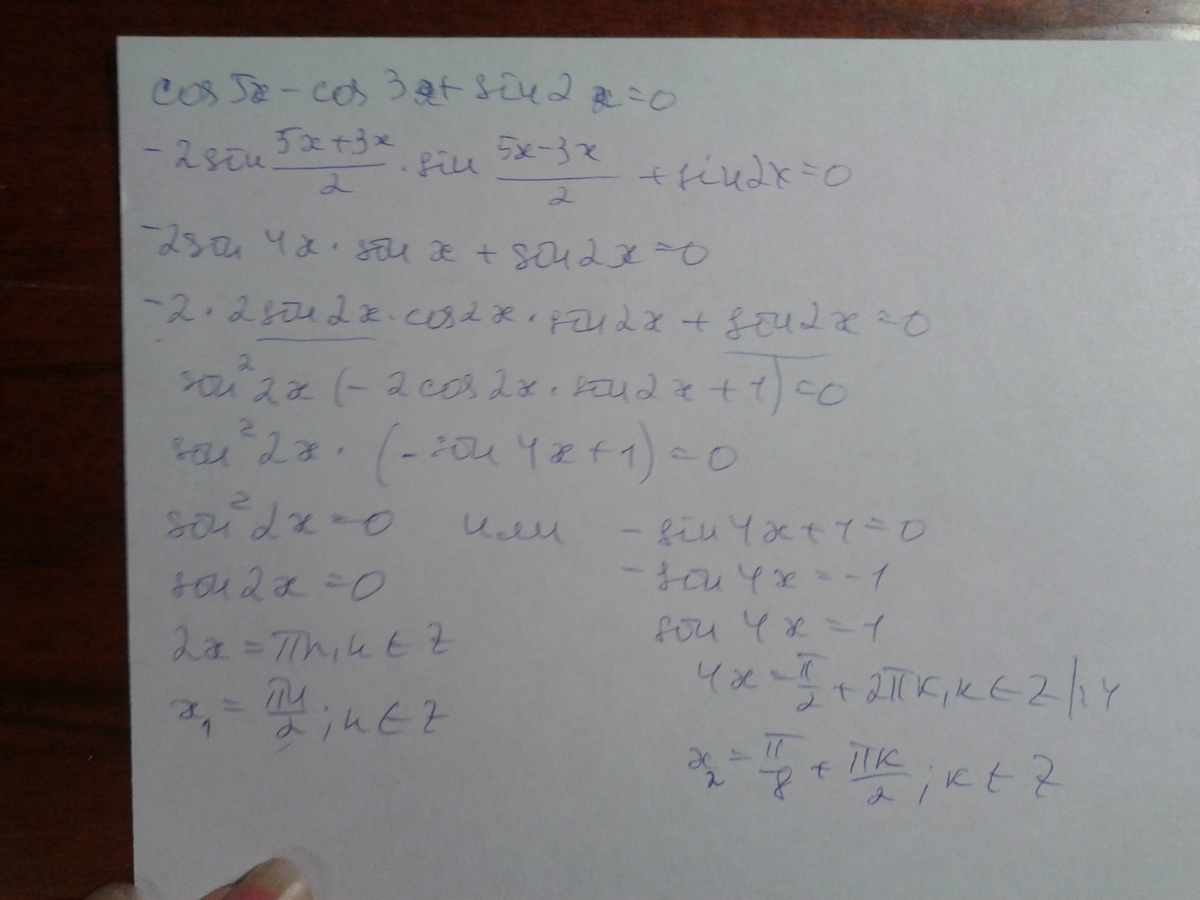 cos 5x - cos 3x + sin 2x = 0
-2 sin (5x+3x)/2 · sin (5x-3x)/2 + sin 2x = 0
-2 sin 4x · sin x + sin 2x = 0
-2 · 2 sin 2x · cos 2x · sin 2x + sin 2x = 0
sin² 2x (-2 cos 2x · sin 2x + 1) = 0
sin² 2x · (- sin 4x + 1) = 0
sin² 2x = 0 или - sin 4x + 1 = 0
sin 2x = 0 - sin 4x = -1
sin 4x = 1
2x = πn, n ∈ Z
4x = π/2 + 2πk, k ∈ Z |: 4
x₁ = πn/2 ; n ∈ Z
x₂ = π/8 + πk/2 ; k ∈ Z